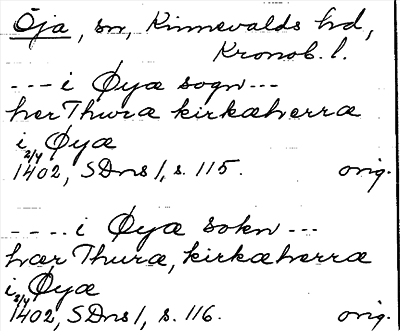 Öja, sn, Kinnevalds hd,
Kronob. l.
--- i Øyæ sogn ---
her Thuræ kirkæherræ
i Øyæ
2/4 1402, SDns 1, s. 115. orig.
---- i Øyæ sokn ---
hær Thuræ, kirkæherræ
i Øyæ
2/4 1402, SDns 1, s. 116. orig.